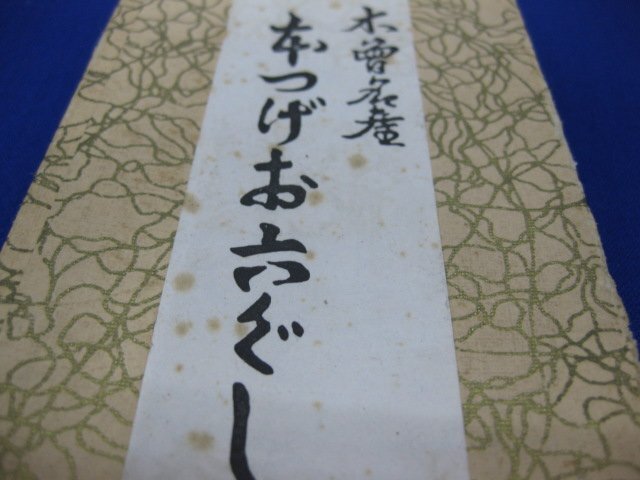 木曽名産
本つげお六ぐし